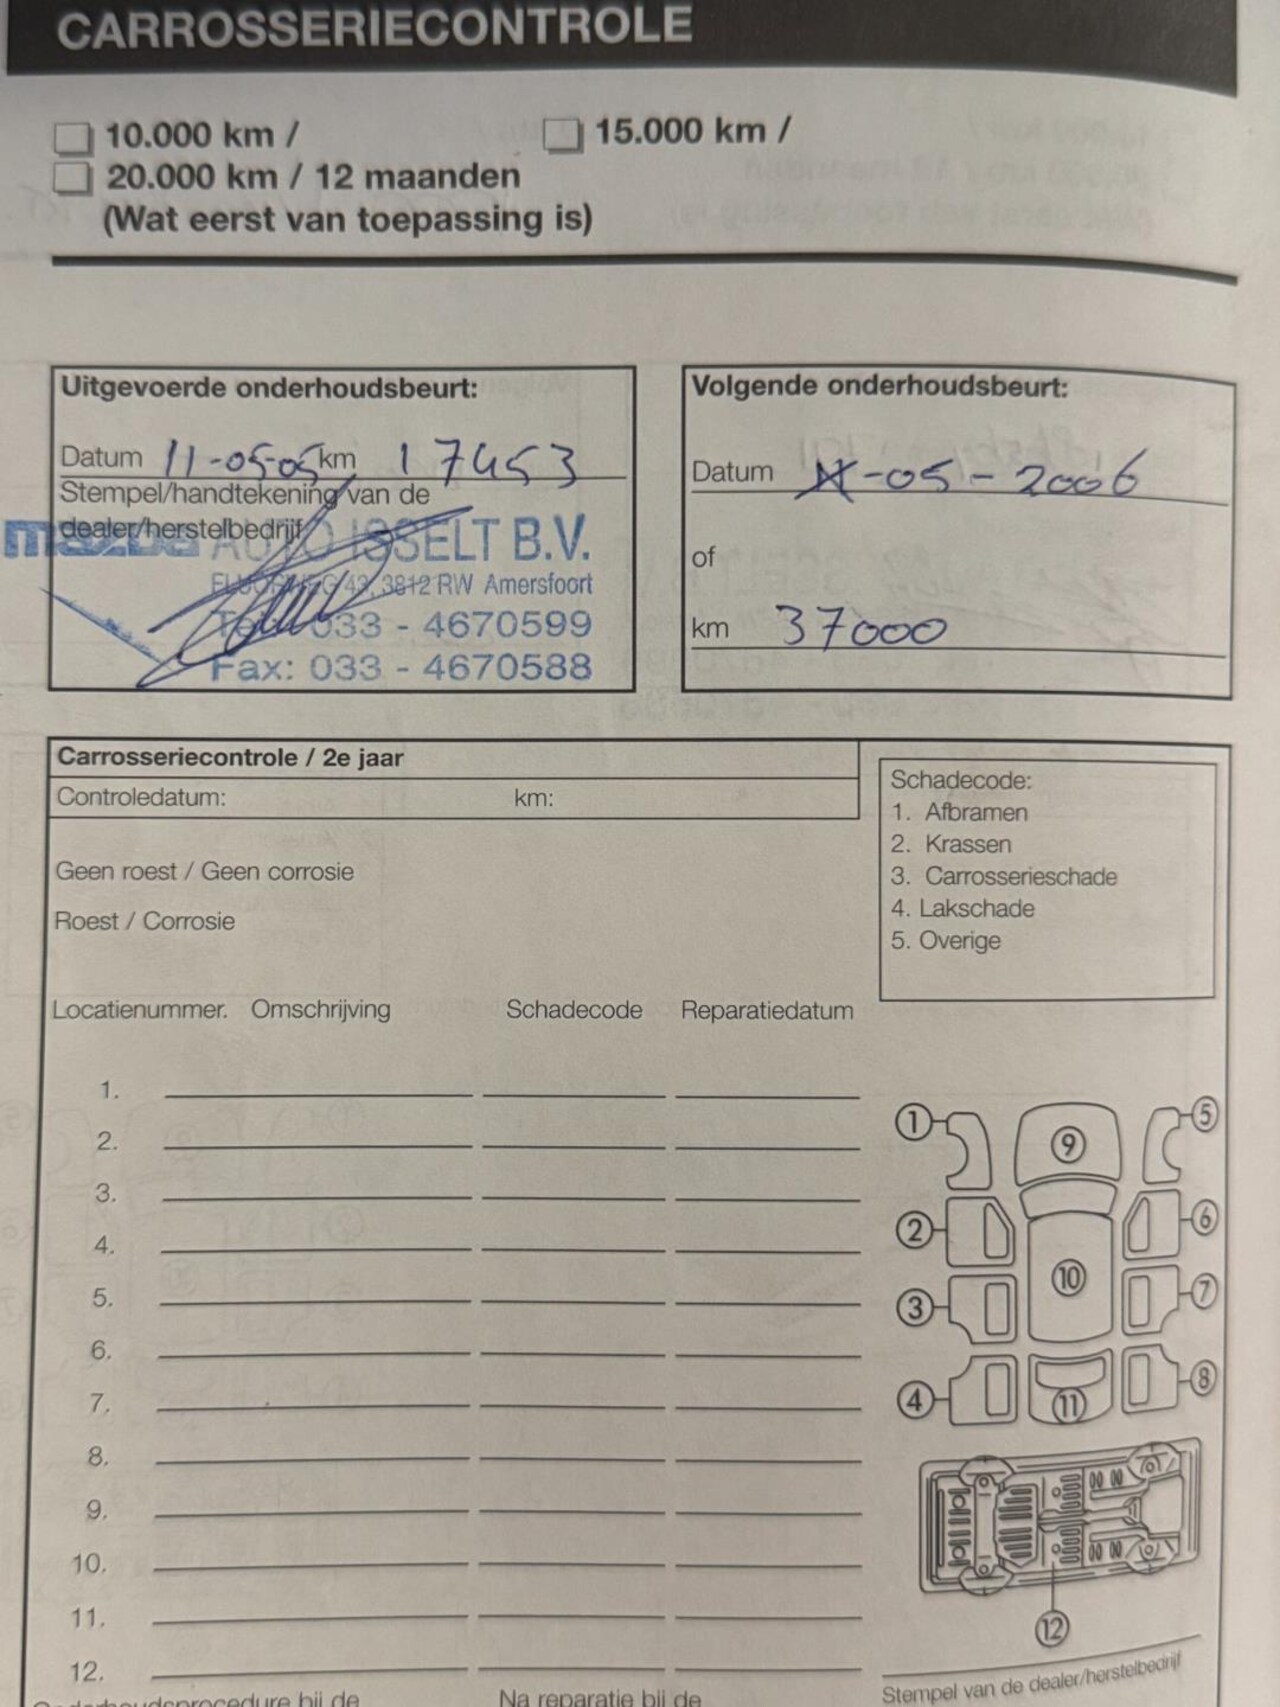 CARROSSERIECONTROLE
10.000 km / 15.000 km /
20.000 km / 12 maanden
(Wat eerst van toepassing is)
Uitgevoerde onderhoudsbeurt:
Datum 11-05-05 km 17453
Stempel/handtekening van de
dealer/herstelbedrijf
mazda AUTO ISSELT B.V.
43, 3812 RW Amersfoort
Tel: 033 - 4670599
Fax: 033 - 4670588
Volgende onderhoudsbeurt:
Datum -05-2006
of
km 37000
Carrosseriecontrole / 2e jaar
Controledatum: km:
Geen roest / Geen corrosie
Roest / Corrosie
Schadecode:
1. Afbramen
2. Krassen
3. Carrosserieschade
4. Lakschade
5. Overige
Locatienummer. Omschrijving Schadecode Reparatiedatum
1.
2.
3.
4.
5.
6.
7.
8.
9.
10.
11.
12.
1 9 5
2 6
10
3 7
4 11 8
12
Stempel van de dealer/herstelbedrijf
Onderhoudsprocedure bij de Na reparatie bij de